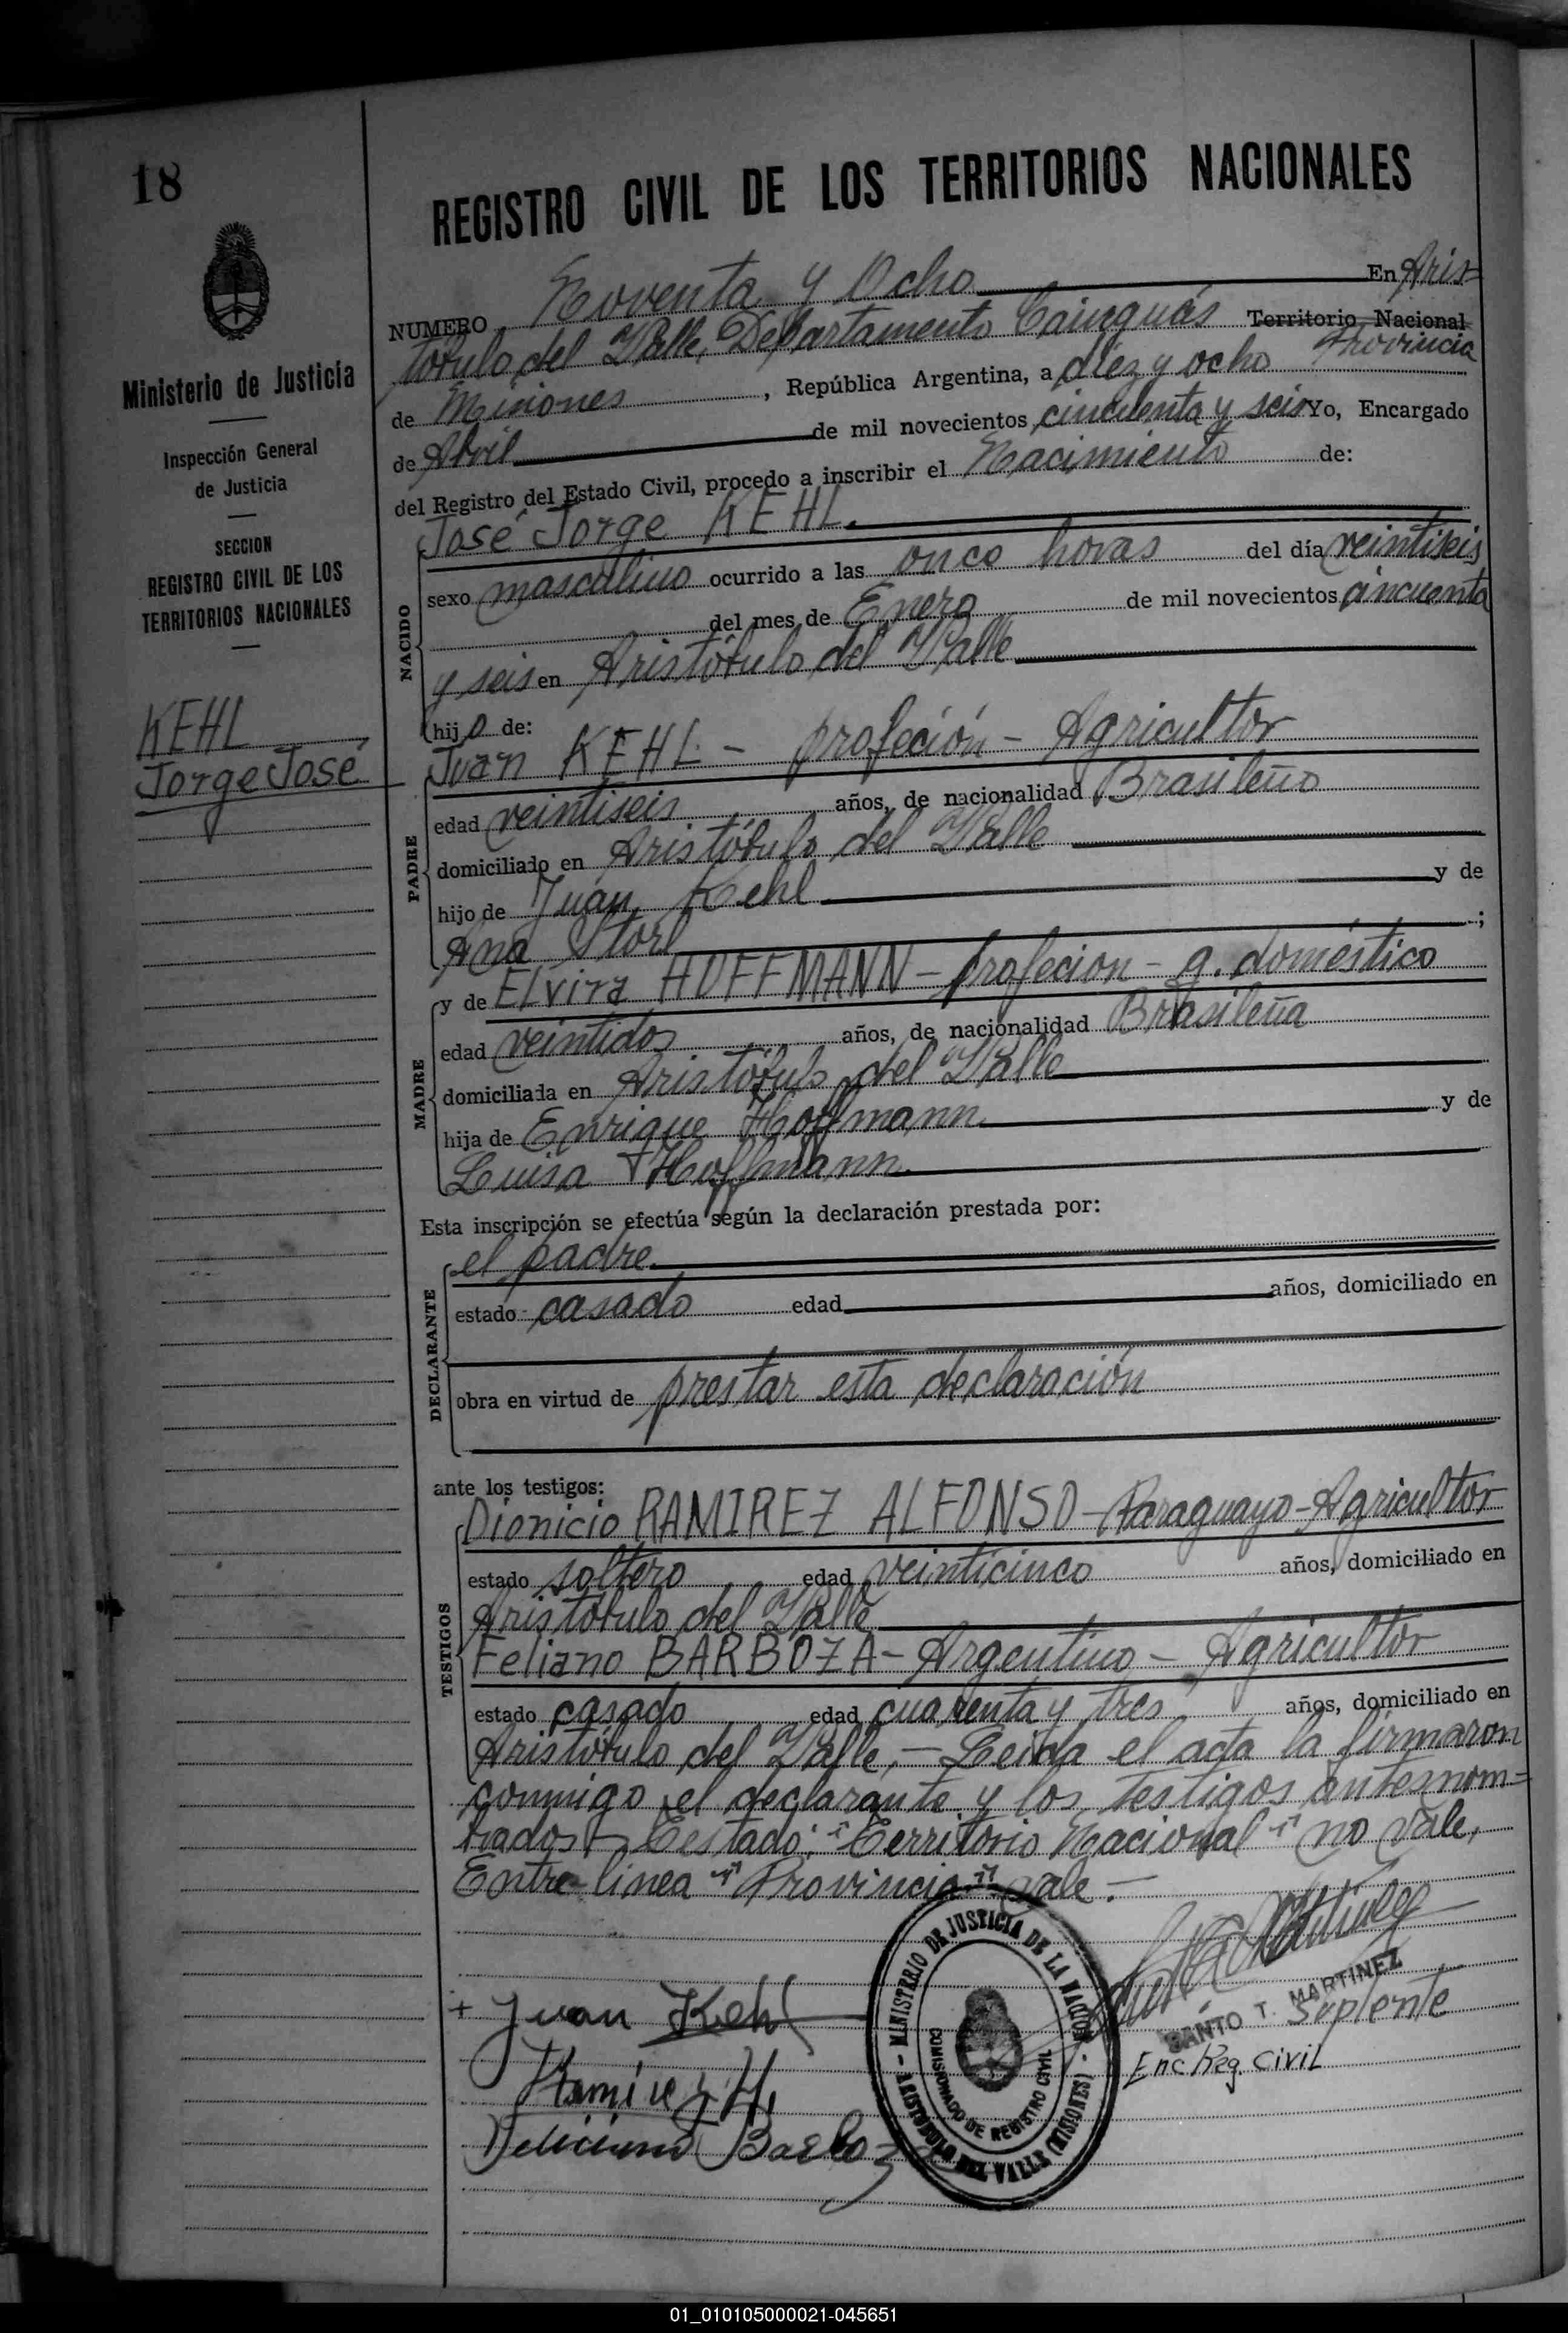 18
REGISTRO CIVIL DE LOS TERRITORIOS NACIONALES
Ministerio de Justicia
Inspección General
de Justicia
SECCION
REGISTRO CIVIL DE LOS
TERRITORIOS NACIONALES
KEHL
Jorge José
NUMERO Noventa y Ocho En Aris-
tóbulo del Valle, Departamento Cainguás Territorio Nacional
Provincia
de Misiones, República Argentina, a diez y ocho
de Abril de mil novecientos cincuenta y seis Yo, Encargado
del Registro del Estado Civil, procedo a inscribir el Nacimiento de:
NACIDO
José Jorge KEHL.
sexo masculino ocurrido a las once horas del día veintiseis
del mes de Enero de mil novecientos cincuenta
y seis en Aristóbulo del Valle
hijo de:
PADRE
Juan KEHL - profeción - Agricultor
edad veintiseis años, de nacionalidad Brasileño
domiciliado en Aristóbulo del Valle
hijo de Juan Kehl y de
Ana Storl ;
MADRE
y de Elvira HOFFMANN - profecion - q. doméstico
edad veintidos años, de nacionalidad Brasileña
domiciliada en Aristóbulo del Valle
hija de Enrique Hoffmann y de
Luisa Hoffmann.
Esta inscripción se efectúa según la declaración prestada por:
DECLARANTE
el padre.
estado casado edad años, domiciliado en
obra en virtud de prestar esta declaración
ante los testigos:
TESTIGOS
Dionicio RAMIREZ ALFONSO - Paraguayo - Agricultor
estado soltero edad veinticinco años, domiciliado en
Aristóbulo del Valle
Feliano BARBOZA - Argentino - Agricultor
estado casado edad cuarenta y tres años, domiciliado en
Aristóbulo del Valle, - Leida el acta la firmaron
conmigo el declarante y los testigos antesnom=
brados - Testado: "Territorio Nacional" no vale,
Entre-linea "Provincia" vale. -
+ Juan Kehl
Ramirez A,
Feliciano Barboza
MINISTERIO DE JUSTICIA DE LA NACION
COMISIONADO DE REGISTRO CIVIL
ARISTOBULO DEL VALLE (MISIONES)
SANTO T. MARTINEZ
Suplente
Enc Reg. Civil
01_010105000021-045651